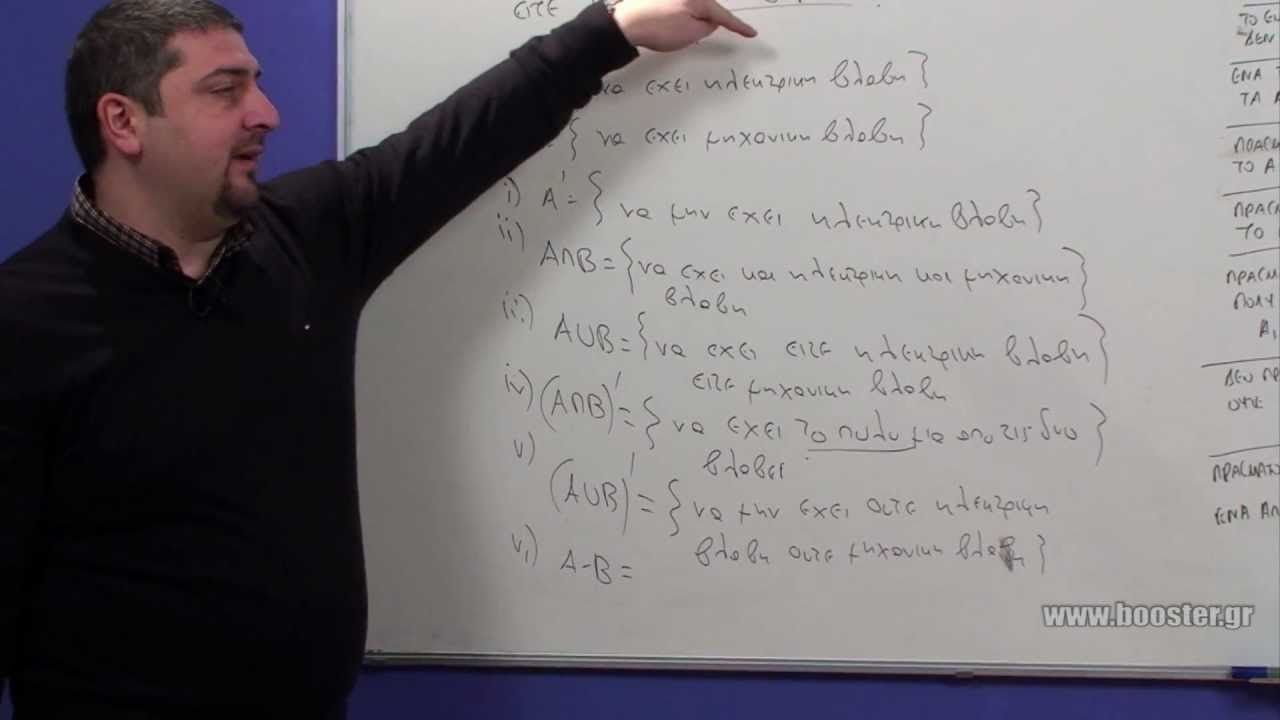 ΕΙΤΕ
να εχει ηλεκτρικη βλαβη }
{ να εχει μηχανικη βλαβη }
i) A' = { να μην εχει ηλεκτρικη βλαβη }
ii) A∩B = { να εχει και ηλεκτρικη και μηχανικη
βλαβη }
iii) A∪B = { να εχει ειτε ηλεκτρικη βλαβη
ειτε μηχανικη βλαβη }
iv) (A∩B)' = { να εχει το πολυ μια απο τις δυο
βλαβες }
v) (A∪B)' = { να μην εχει ουτε ηλεκτρικη
βλαβη ουτε μηχανικη βλαβη }
vi) A-B =
ΤΟ
ΔΕΝ
ΕΝΑ
ΤΑ
ΤΟ Α
ΤΟ
ΠΟΛΥ
Α₁
ΔΕΝ ΠΡ
ΟΥΤΕ
ΠΡΑΓΜΑΤΟ
ΕΝΑ ΑΠ
www.booster.gr